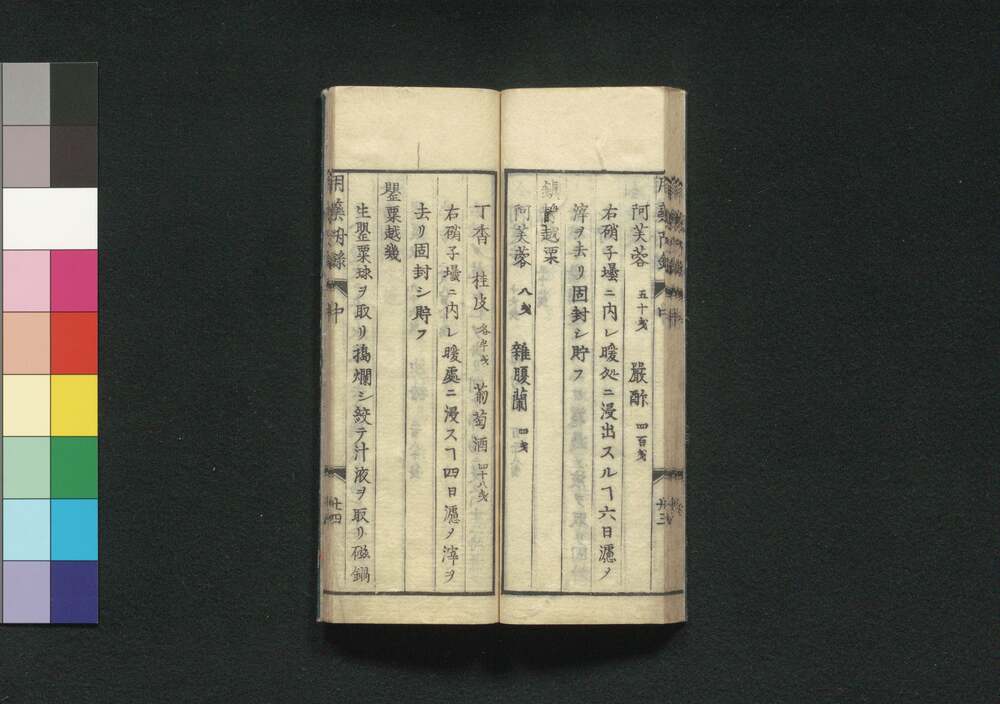 阿芙蓉 五十戔 嚴酢 四百戔
右硝子壜ニ内レ暖処ニ浸出スルヿ六日濾メ
滓ヲ去リ固封シ貯フ
鎮痙越栗
阿芙蓉 八戔 雜腹蘭 四戔
丁香 桂皮 各半戔 葡萄酒 四十八戔
右硝子壜ニ内レ暖處ニ浸スヿ四日濾メ滓ヲ
去リ固封シ貯フ
罌粟越幾
生罌粟球ヲ取リ搗爛シ絞テ汁液ヲ取リ磁鍋
廿四